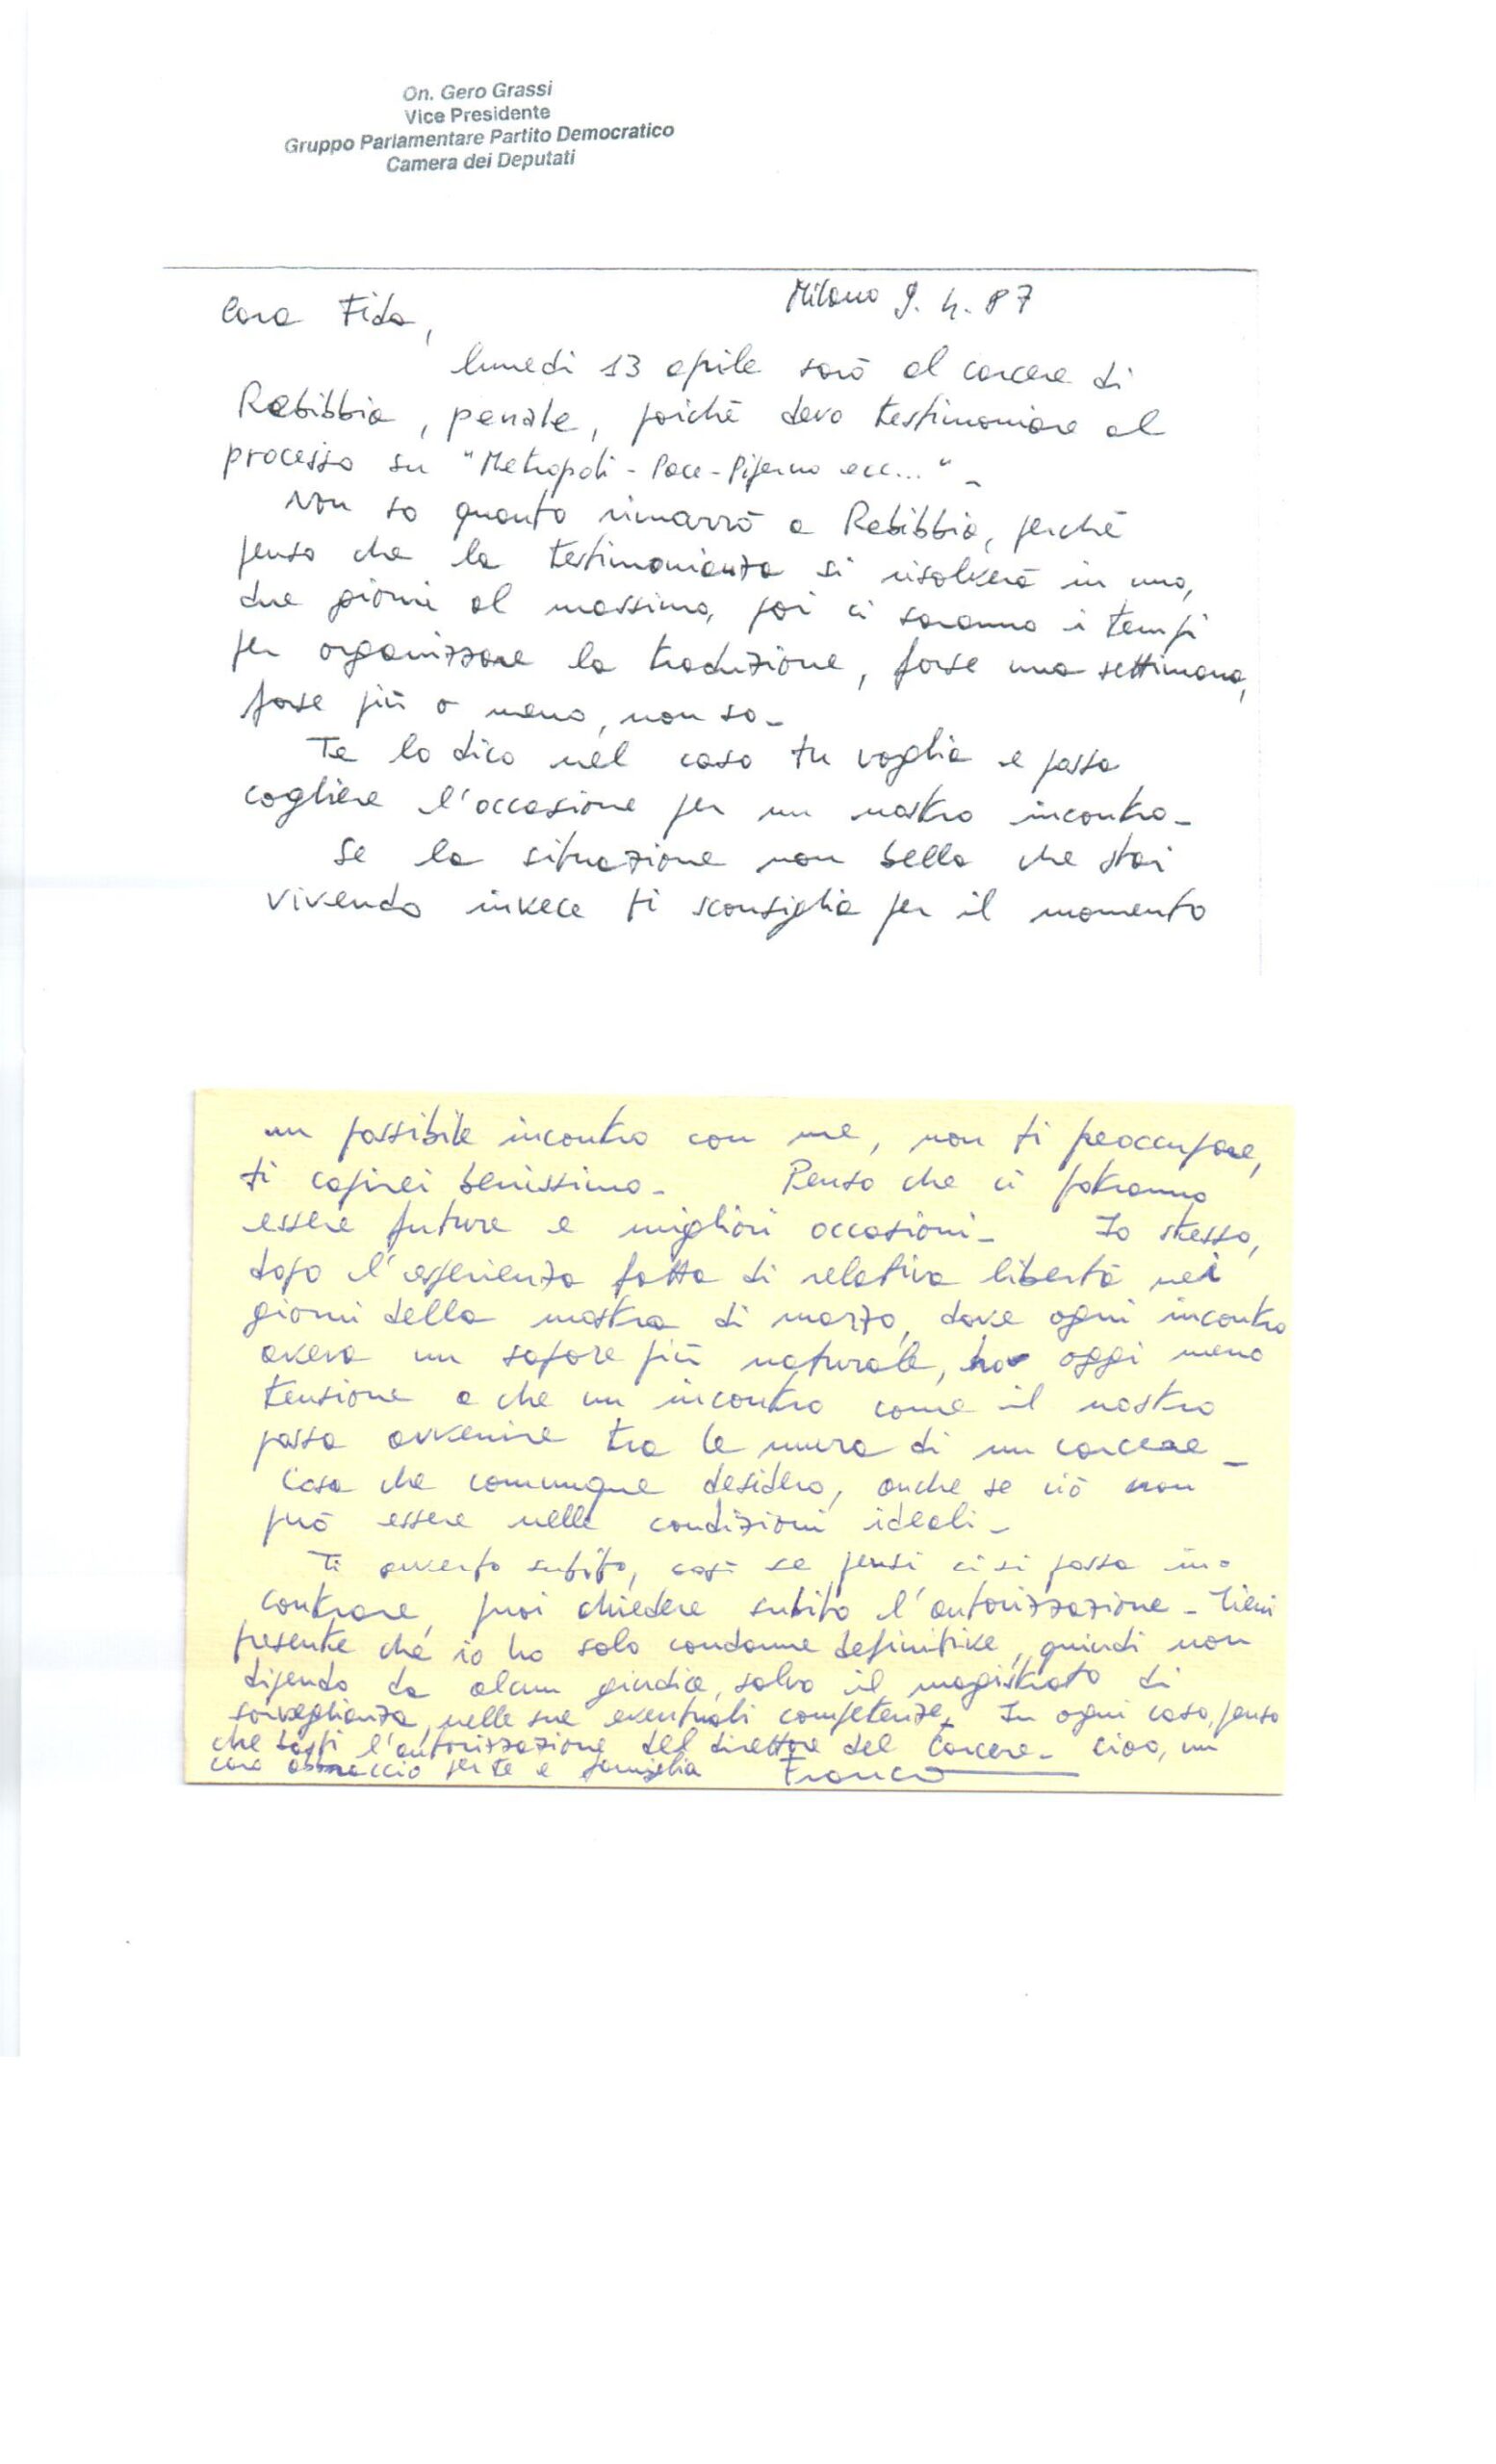 On. Gero Grassi
Vice Presidente
Gruppo Parlamentare Partito Democratico
Camera dei Deputati
Milano 9. 4. 87
Cara Fida,
lunedì 13 aprile sarò al carcere di
Rebibbia, penale, poiché devo testimoniare al
processo su "Metropoli - Pace - Piperno ecc..."-
Non so quanto rimarrò a Rebibbia, perché
penso che la testimonianza si risolverà in uno,
due giorni al massimo, poi ci saranno i tempi
per organizzare la traduzione, forse una settimana,
forse più o meno, non so-
Te lo dico nel caso tu voglia e possa
cogliere l'occasione per un nostro incontro-
Se la situazione non bella che stai
vivendo invece ti sconsiglia per il momento
un possibile incontro con me, non ti preoccupare,
ti capirei benissimo- Penso che ci potranno
essere future e migliori occasioni- Io stesso,
dopo l'esperienza fatta di relativa libertà nei
giorni della mostra di marzo, dove ogni incontro
aveva un sapore più naturale, ho oggi meno
tensione a che un incontro come il nostro
possa avvenire tra le mura di un carcere-
Cosa che comunque desidero, anche se ciò non
può essere nelle condizioni ideali-
Ti avverto subito, così se pensi ci si possa in-
contrare, puoi chiedere subito l'autorizzazione- Tieni
presente che io ho solo condanne definitive, quindi non
dipendo da alcun giudice, salvo il magistrato di
sorveglianza, nelle sue eventuali competenze- In ogni caso, penso
che basti l'autorizzazione del direttore del Carcere- Ciao, un
caro abbraccio per te e famiglia Franco